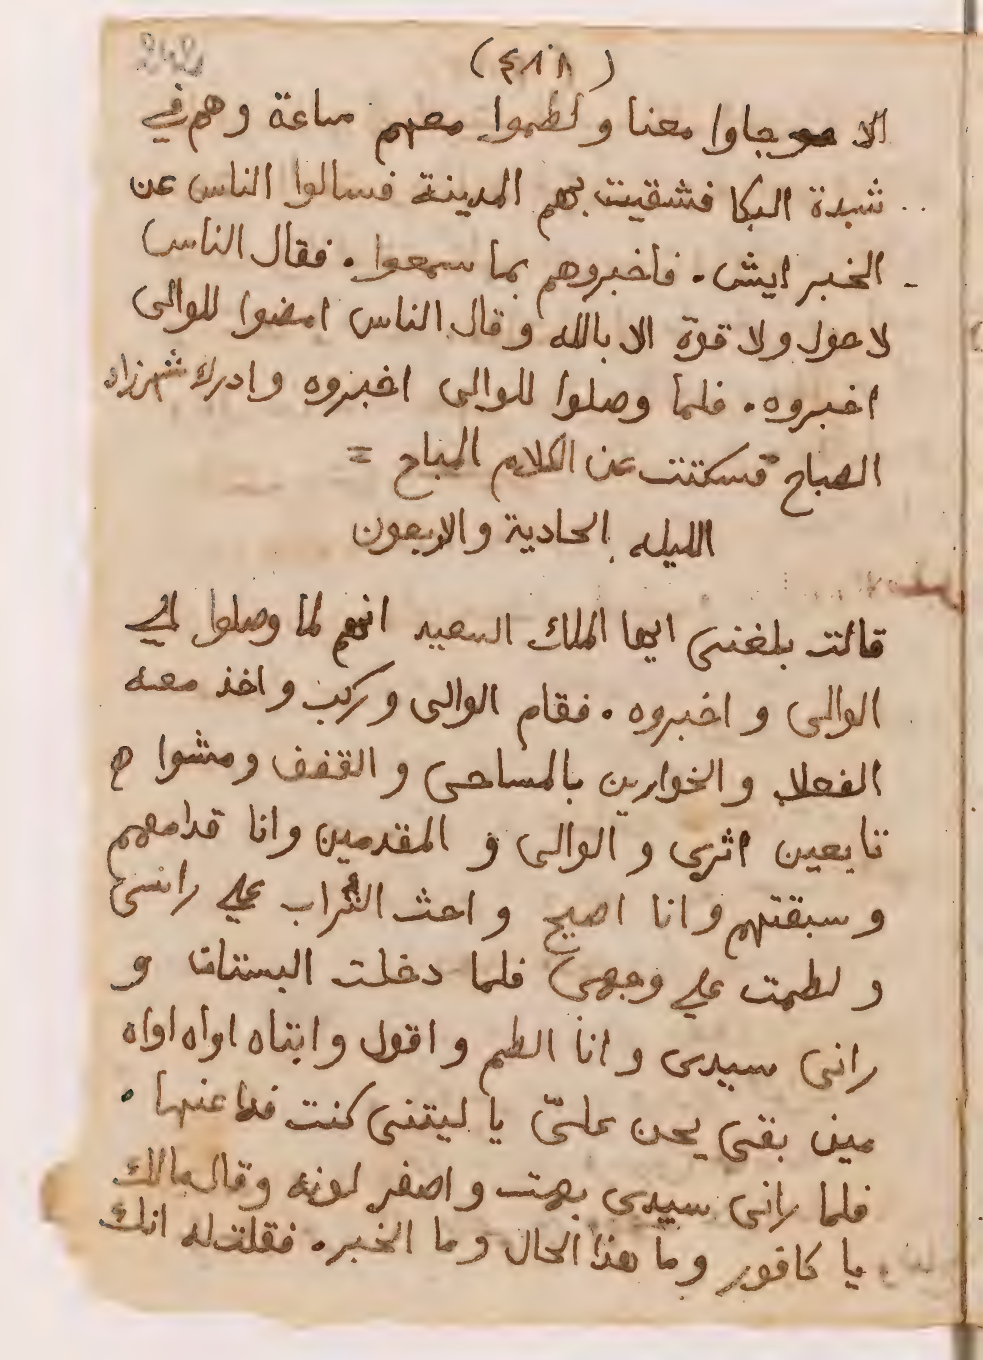 الا جاوا معنا و لطموا معهم ساعة و هم في
شدة البكا فشقيت بهم المدينة فسالوا الناس عن
الخبر ايش . فاخبروهم بما سمعوا . فقال الناس
لا حول ولا قوّة الا بالله و قال الناس امضوا للوالى
اخبروه . فلما وصلوا للوالى اخبروه وادرك شهرزاد
الصباح فسكتت عن الكلام المباح =
الليله الحادية والاربعون
قالت بلغنى ايها الملك السعيد انهم لما وصلوا الي
الوالى و اخبروه . فقام الوالى و ركب و اخذ معه
الفعلا و الخوارين بالمساحى و القفف ومشوا
تابعين اثرى و الوالى و المقدمين وانا قدامهم
و سبقتهم و انا اصيح و احث التراب علي راسى
و لطمت علي وجهى فلما دخلت البستان و
رانى سيدى و انا الطم و اقول و ابتاه اواه اواه
مين بقى يحن علىّ يا ليتنى كنت فدا عنها .
فلما رانى سيدى بهت و اصفر لونه وقال مالك
يا كافور و ما هذا الحال و ما الخبر . فقلت له انك